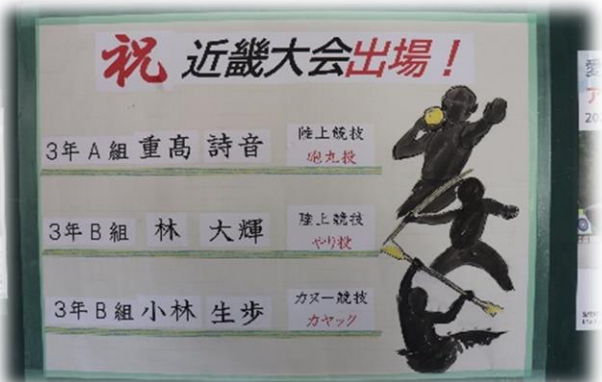 祝 近畿大会出場！
3年A組 重髙 詩音
陸上競技
砲丸投
3年B組 林 大輝
陸上競技
やり投
3年B組 小林 生歩
カヌー競技
カヤック
愛
ア